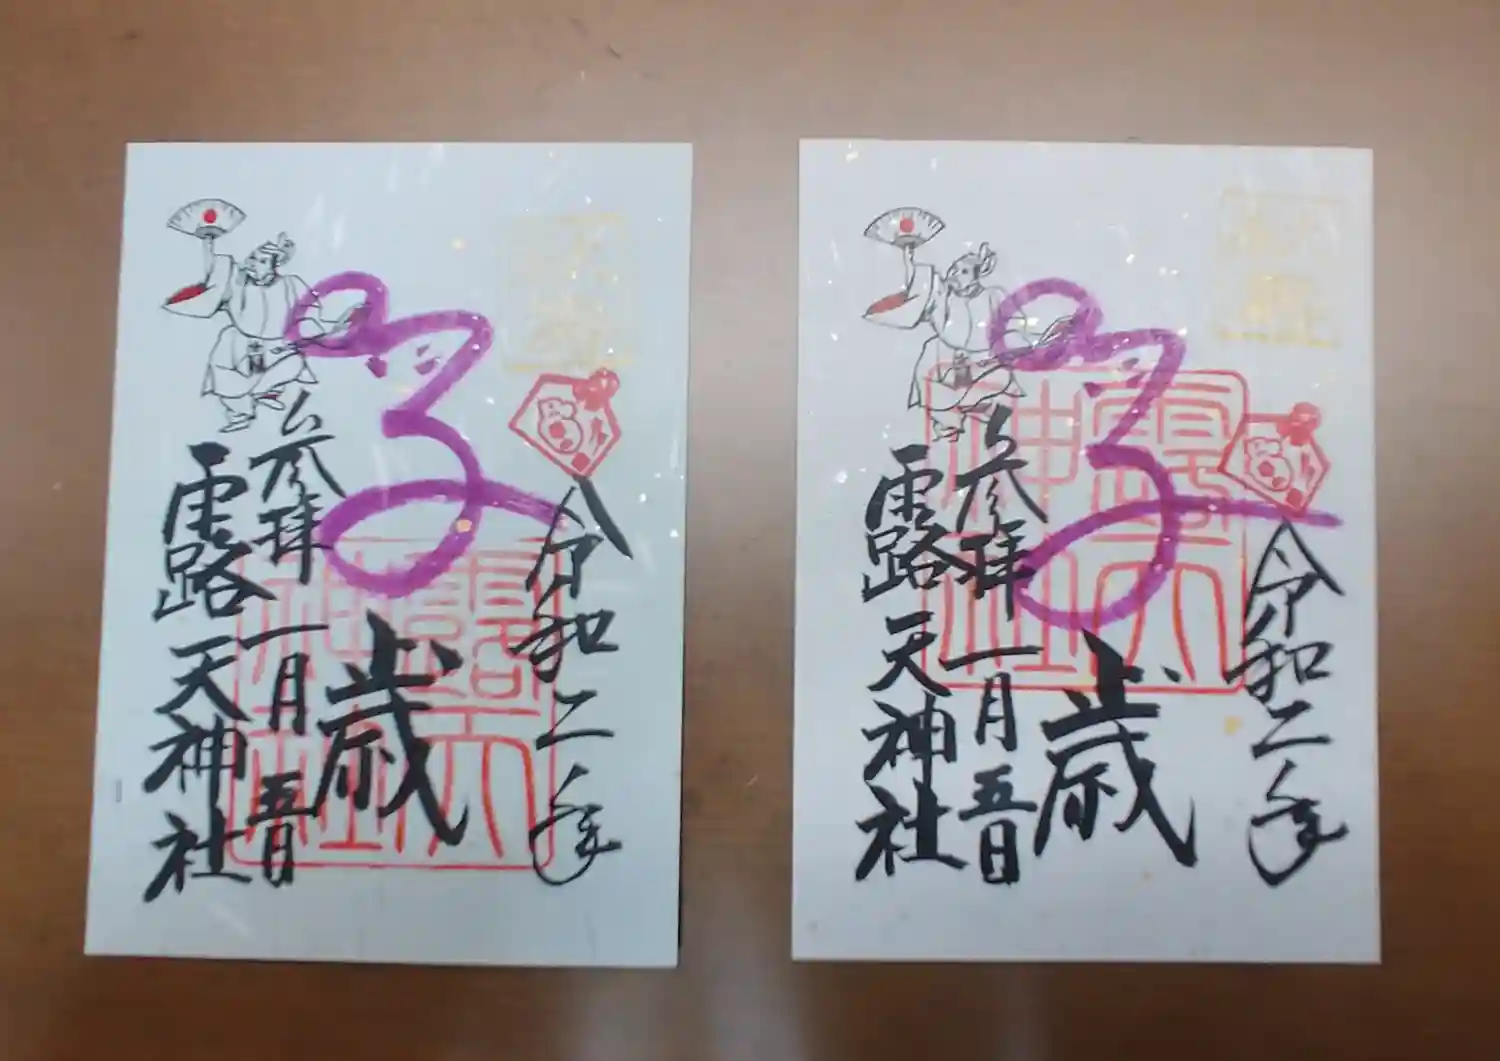 令和二年
子歳
参拝 一月五日
露天神社
令和二年
子歳
参拝 一月五日
露天神社
露天神社